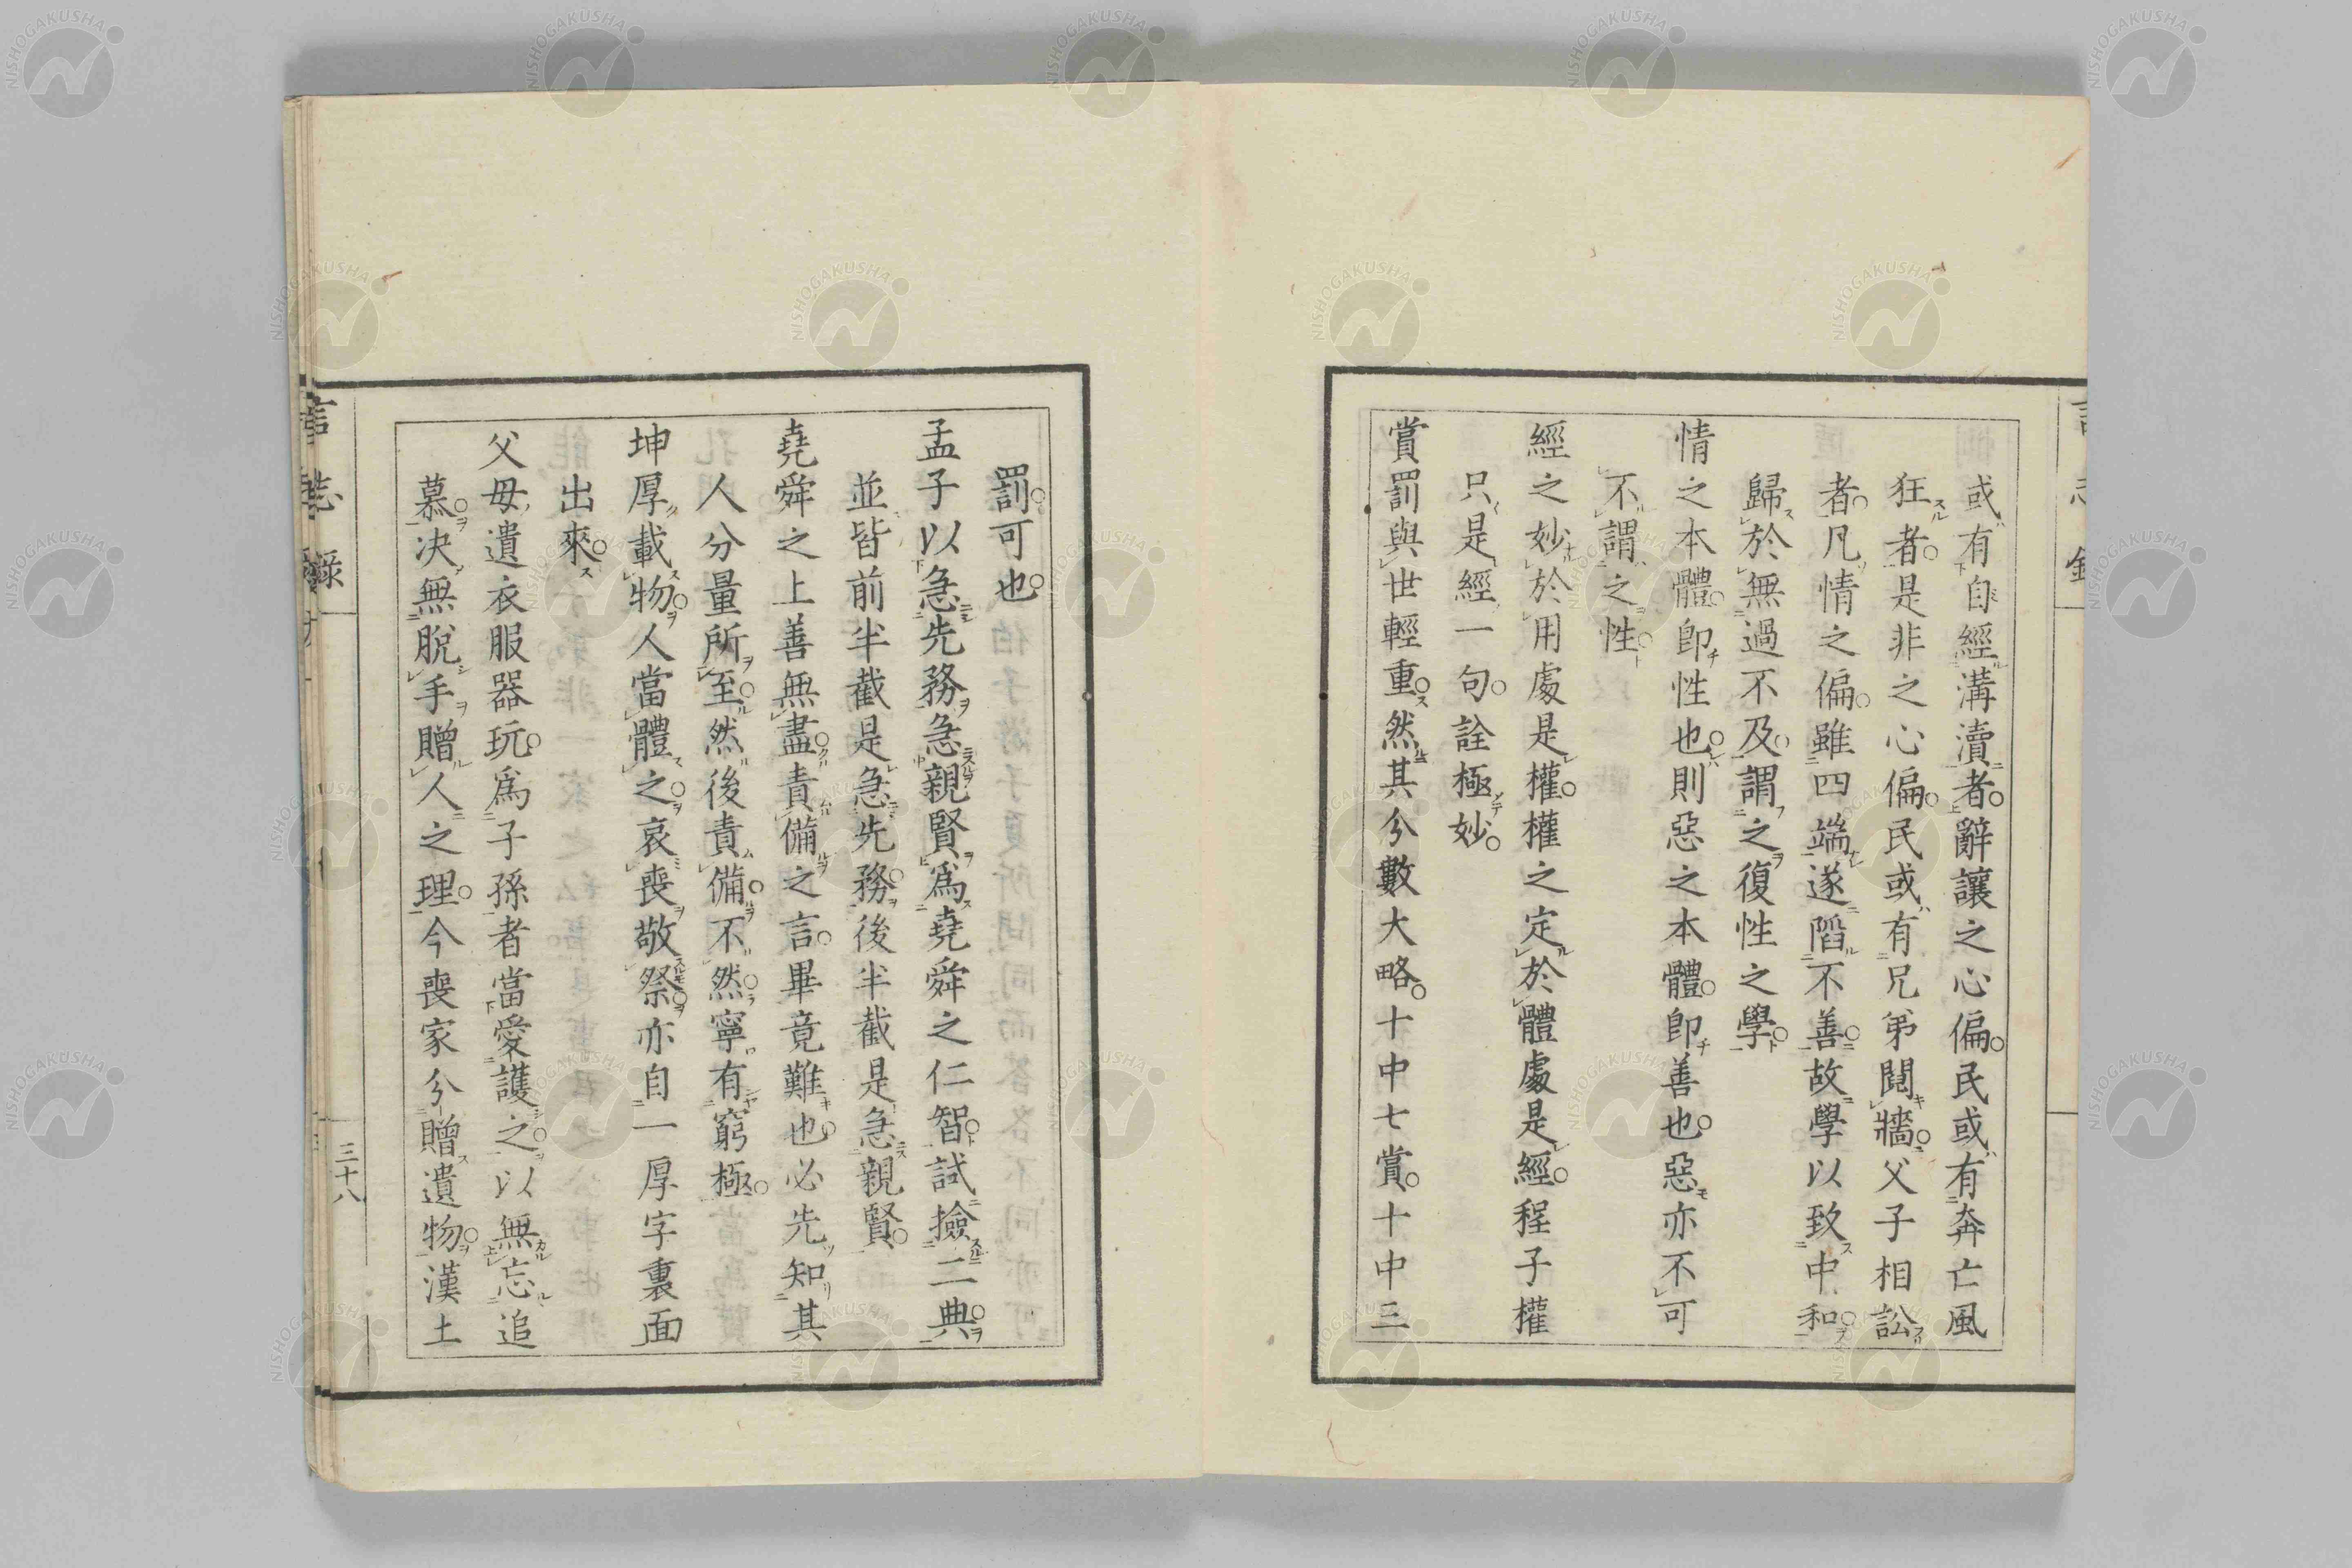 或有自經溝瀆者辭讓之心偏民或有奔亡風
狂者是非之心偏民或有兄弟鬩牆父子相訟
者凡情之偏雖四端遂陷不善故學以致中和
歸於無過不及謂之復性之學
情之本體卽性也則惡之本體卽善也惡亦不可
不謂之性
經之妙於用處是權權之定於體處是經程子權
只是經一句詮極妙
賞罰與世輕重然其分數大略十中七賞十中三
罰可也
孟子以急先務急親賢爲堯舜之仁智試撿二典
並皆前半截是急先務後半截是急親賢
堯舜之上善無盡責備之言畢竟難也必先知其
人分量所至然後責備不然寧有窮極
坤厚載物人當體之哀喪敬祭亦自一厚字裏面
出來
父母遺衣服器玩爲子孫者當愛護之以無忘追
慕决無脫手贈人之理今喪家分贈遺物漢土
言志錄
三十八
NISHOGAKUSHA